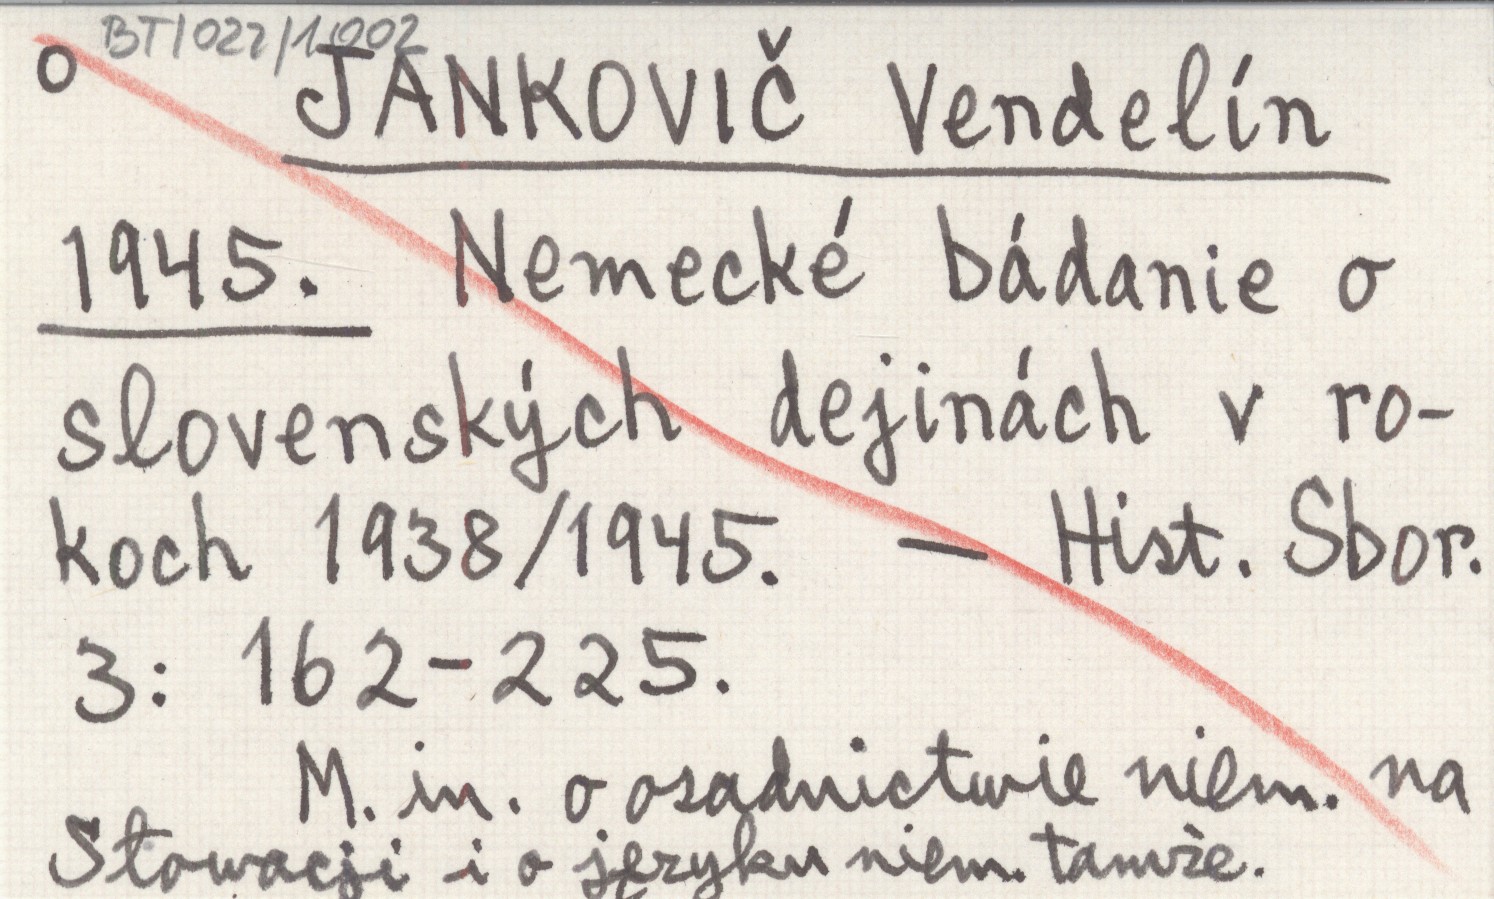 BT/022/1.002
o JANKOVIČ Vendelín
1945. Nemecké bádanie o
slovenských dejinách v ro-
koch 1938/1945. — Hist. Sbor.
3: 162-225.
M. in. o osadnictwie niem. na
Słowacji i o języku niem. tamże.